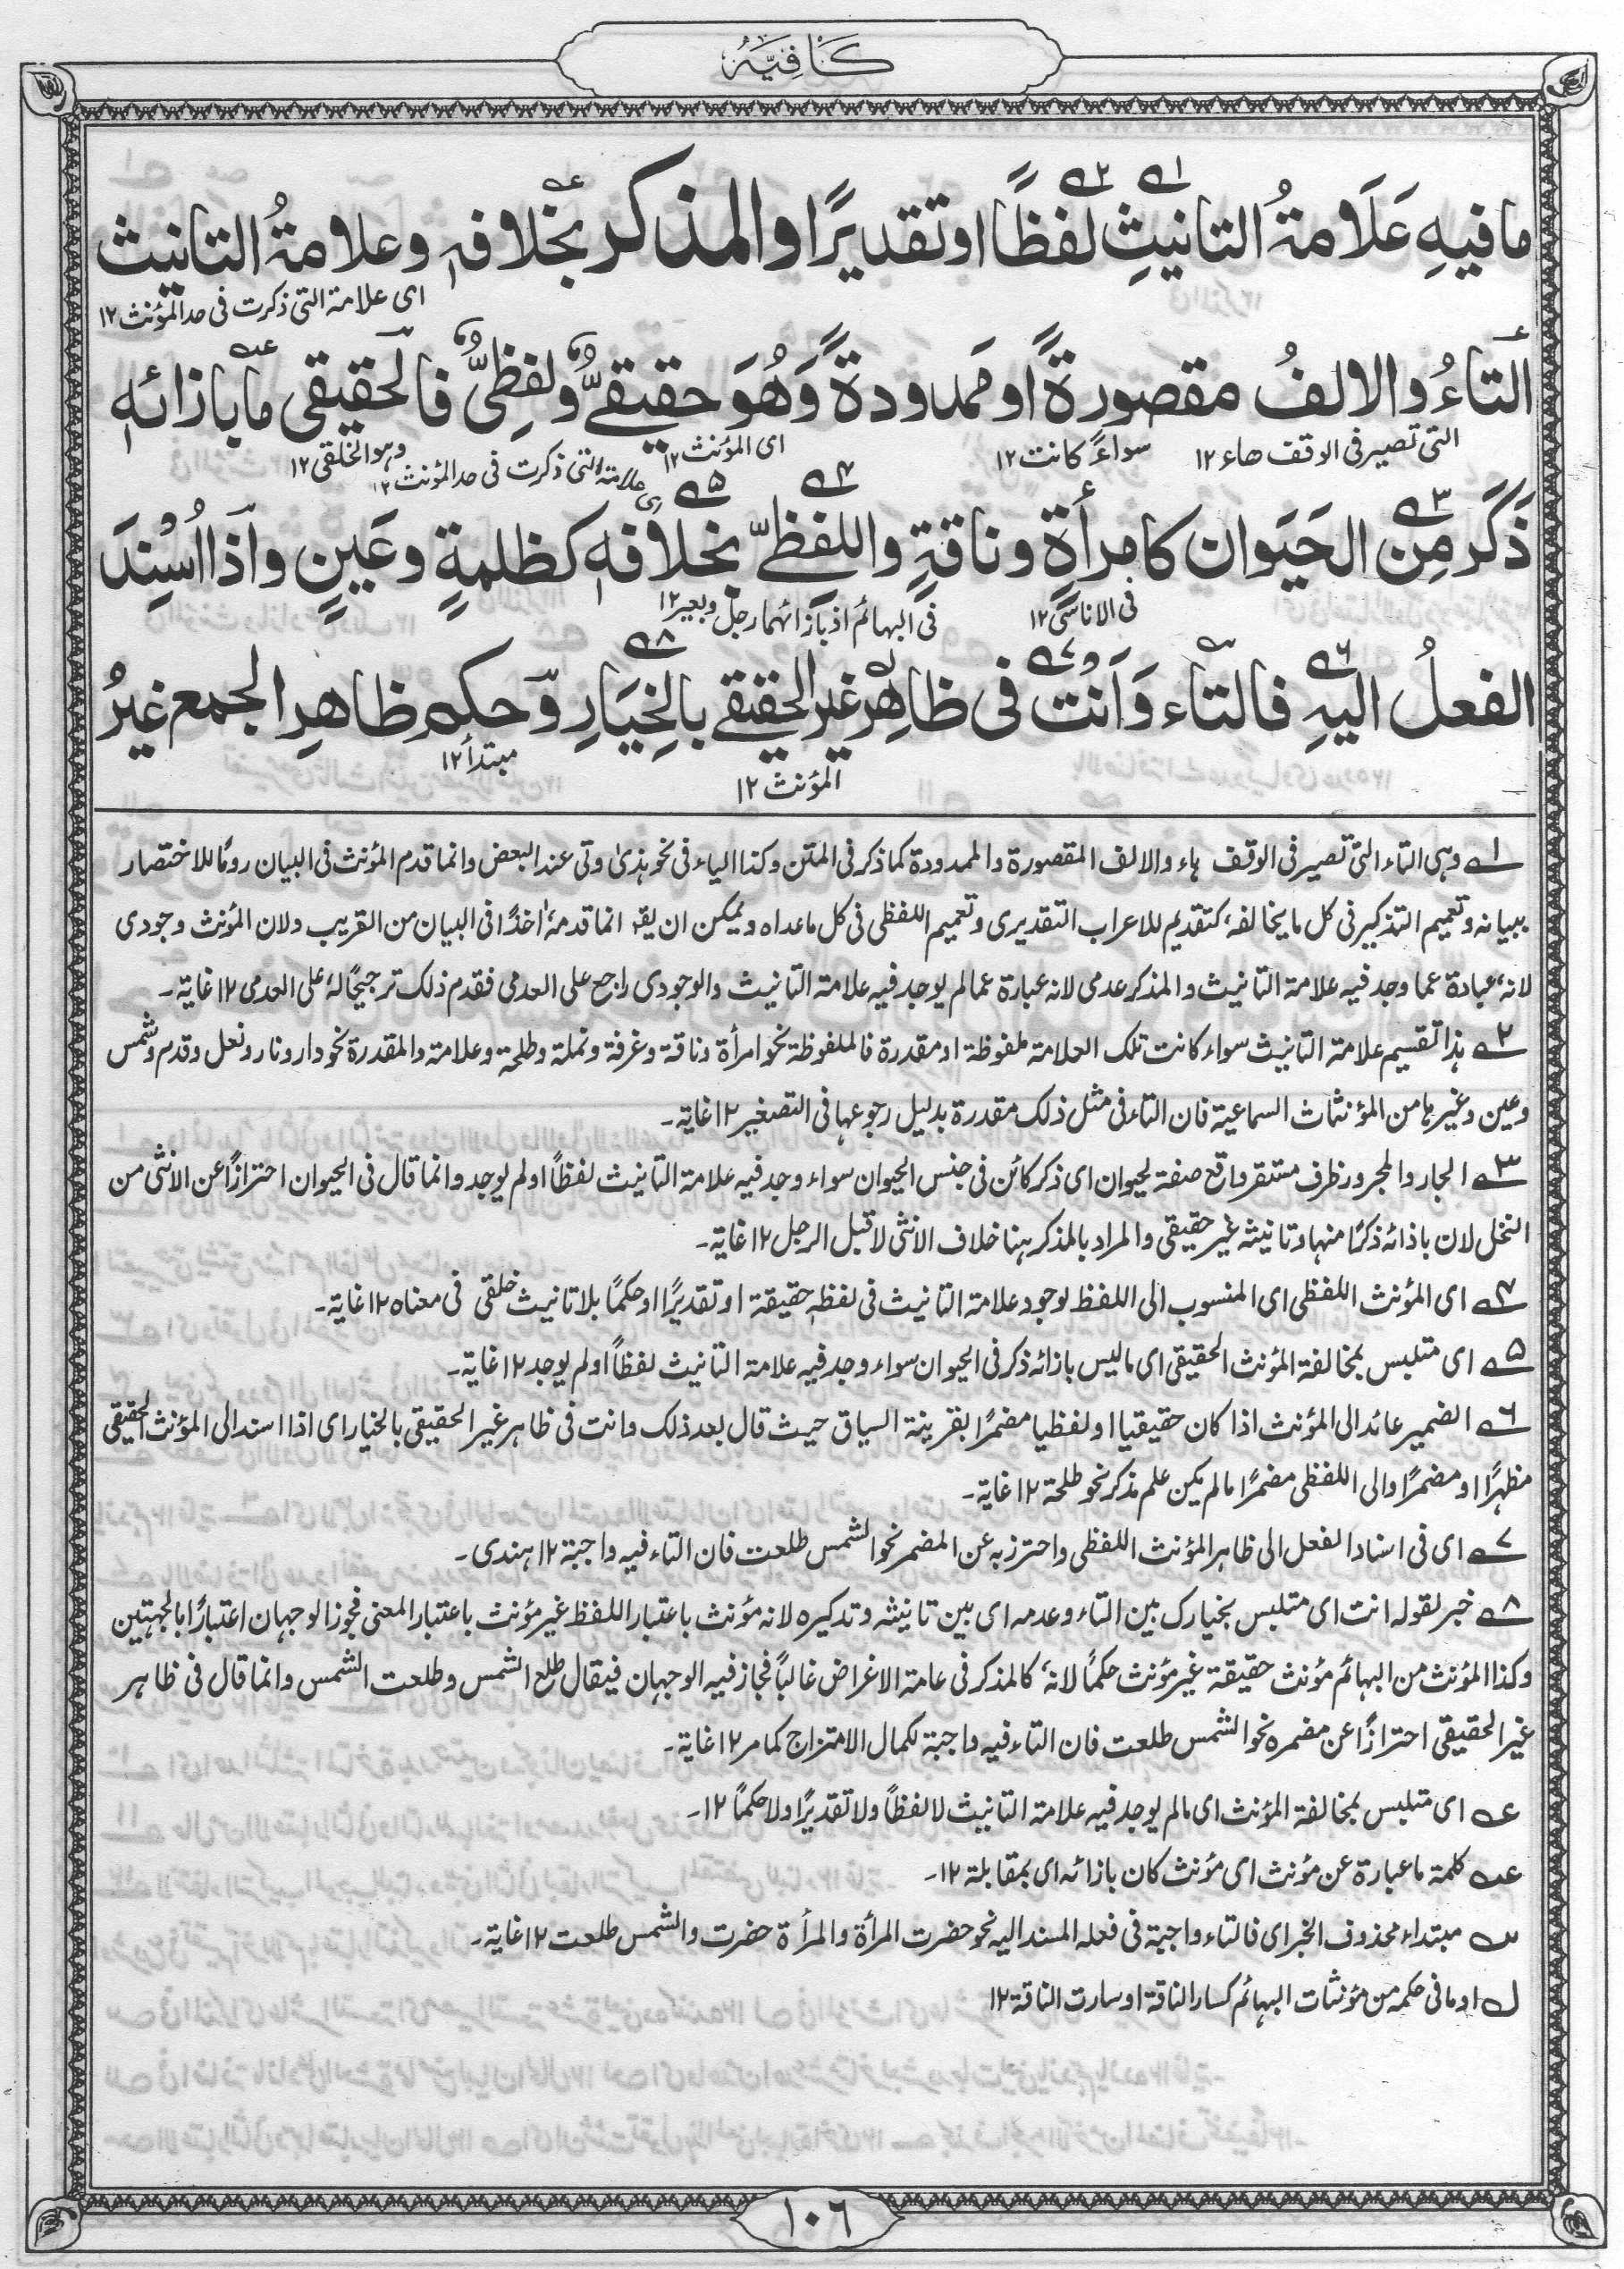 كَافِيَه
مافيهِ عَلَامةُ التانيثِ لفظًا اوتقديرًا والمذكر بخلافهٖ وعلامةُ التانيث
ای علامة التی ذكرت فی حد المؤنث ١٢
التاءُ والالفُ مقصورةً او ممدودةً وَهُوَ حقيقیٌّ ولفظِیٌّ فالحقيقی ما بازائهٖ
التی تصير فی الوقف هاء ١٢ سواءً كانت ١٢ ای المؤنث ١٢ علامة التی ذكرت فی حد المؤنث ١٢ وهو الخلقی ١٢
ذَكَر مِن الحَيَوان كامرأةٍ وناقةٍ واللفظیّ بخلافهٖ كظلمةٍ وعَينٍ واذا اُسْنِدَ
فی الاناسی ١٢ فی البهائم اذ بازائهما رجل وبعير ١٢
الفعلُ اليهِ فالتاء وَاَنْتَ فی ظاهِرِ غير الحقيقی بالخِيَارِ وحكم ظاهرِ الجمع غيرُ
المؤنث ١٢ مبتدأ ١٢
١ وہی التاء التی تصير فی الوقف ہاء والالف المقصورة والممدودة كما ذكر فی المتن وكذا الياء فی نحو ہذی وتی عند البعض وانما قدم المؤنث فی البيان رومًا للاختصار
ببيانه وتعميم التذكير فی كل ما يخالفہ كتقديم للاعراب التقديری وتعميم اللفظی فی كل ما عداه ويمكن ان يقٓ انما قدمہٗ اخذًا فی البيان من القريب ولان المؤنث وجودی
لانہٗ عبارة عما وجد فيه علامة التانيث والمذكر عدمی لانه عبارة عما لم يوجد فيه علامة التانيث والوجودی راجح علی العدمی فقدم ذلک ترجيحًا لہٗ علی العدمی ١٢ غاية۔
٢ ہذا تقسيم علامة التانيث سواء كانت تلک العلامة ملفوظة او مقدرة فالملفوظة نحو امرأة وناقة وغرفة ونملة وطلحة وعلامة والمقدرة نحو دار ونار ونعل وقدم وشمس
وعين وغيرہا من المؤنثات السماعية فان التاء فی مثل ذلک مقدرة بدليل رجوعها فی التصغير ١٢ غاية۔
٣ الجار والمجرور ظرف مستقر واقع صفة لحيوان ای ذكر كائن فی جنس الحيوان سواء وجد فيه علامة التانيث لفظاً او لم يوجد وانما قال فی الحيوان احترازًا عن الانثی من
النخل لان باذائه ذكرًا منها وتانيثه غير حقيقی والمراد بالمذكر ہنا خلاف الانثی لا قبل الرجل ١٢ غاية۔
٤ ای المؤنث اللفظی ای المنسوب الی اللفظ لوجود علامة التانيث فی لفظہٖ حقيقة او تقديرًا او حكمًا بلا تانيث خلقی فی معناه ١٢ غاية۔
٥ ای متلبس بمخالفة المؤنث الحقيقی ای ما ليس بازائه ذكر فی الحيوان سواء وجد فيه علامة التانيث لفظاً او لم يوجد ١٢ غاية۔
٦ الضمير عائد الی المؤنث اذا كان حقيقيا او لفظيا مضمرًا بقرينة السياق حيث قال بعد ذلک وانت فی ظاہر غير الحقيقی بالخيار ای اذا اسند الی المؤنث الحقيقی
مظہرًا او مضمرًا والی اللفظی مضمرًا ما لم يكن علم مذكر نحو طلحة ١٢ غاية۔
٧ ای فی اسناد الفعل الی ظاہر المؤنث اللفظی واحترز به عن المضمر نحو الشمس طلعت فان التاء فيه واجبة ١٢ ہندی۔
٨ خبر لقوله انت ای متلبس بخيارک بين التاء وعدمه ای بين تانيثه وتذكيره لانه مؤنث باعتبار اللفظ غير مؤنث باعتبار المعنی فجوز الوجہان اعتبارًا بالجہتين
وكذا المؤنث من البہائم مؤنث حقيقة غير مؤنث حكمًا لانہٗ كالمذكر فی عامة الاغراض غالباً فجاز فيه الوجہان فيقال طلع الشمس وطلعت الشمس وانما قال فی ظاہر
غير الحقيقی احترازًا عن مضمره نحو الشمس طلعت فان التاء فيه واجبة لكمال الامتزاج كما مر ١٢ غاية۔
عه ای متلبس بمخالفة المؤنث ای ما لم يوجد فيه علامة التانيث لا لفظاً ولا تقديرًا ولا حكمًا ١٢۔
عه كلمة ما عبارة عن مؤنث ای مؤنث كان بازائه ای بمقابلة ١٢۔
مبتداء محذوف الخبر ای فالتاء واجبة فی فعله المسند اليه نحو حضرت المرأة والمرأة حضرت والشمس طلعت ١٢ غاية۔
ل او ما فی حكمه من مؤنثات البہائم كسار الناقة او سارت الناقة ١٢
١٠٦